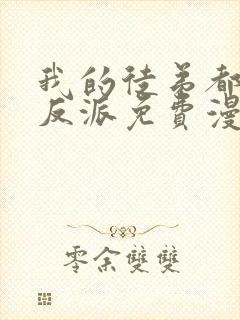 我的徒弟都
反派免費漫
零余雙雙